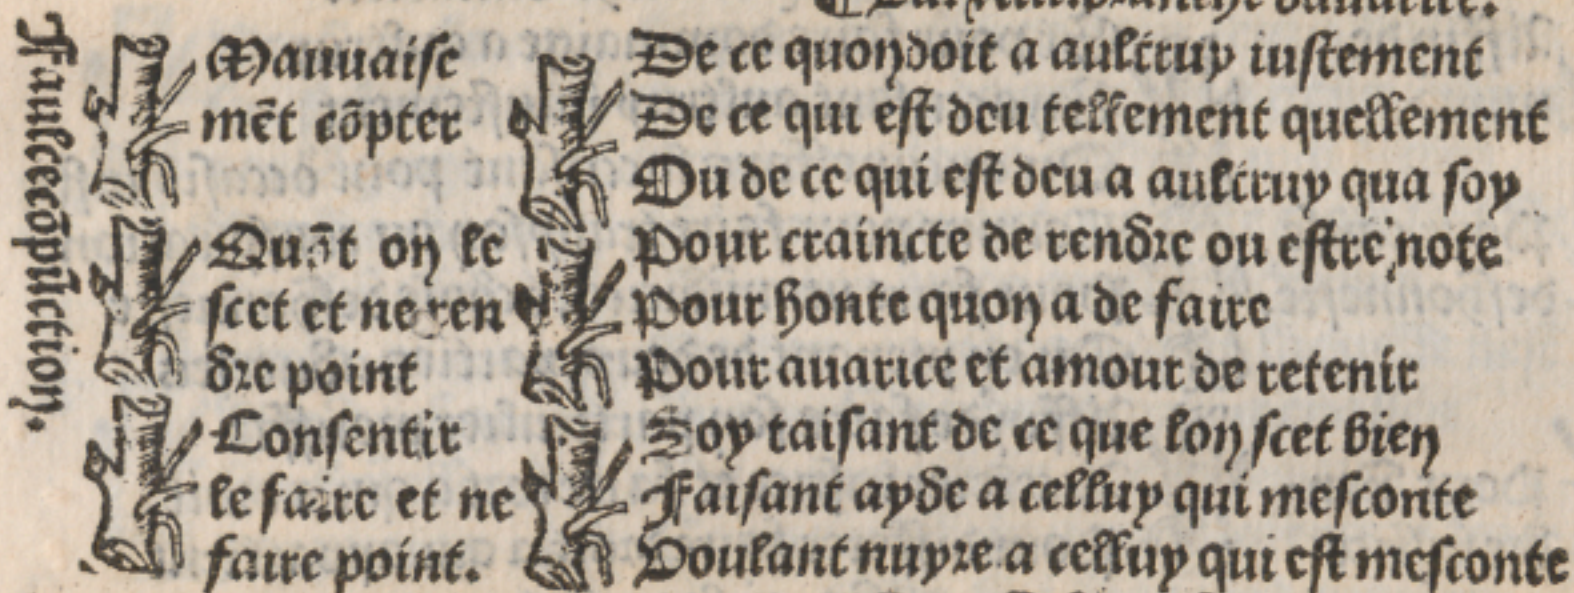 Faulcecõpũction.
Mauuaise
mẽt cõpter
Quãt on le
scet et ne ren
dre point
Consentir
le faire et ne
faire point.
De ce quon doit a aultruy iustement
De ce qui est deu tellement quellement
Ou de ce qui est deu a aultruy qua soy
Pour craincte de rendre ou estre note
Pour honte quon a de faire
Pour auarice et amour de retenir
Soy taisant de ce que lon scet bien
Faisant ayde a celluy qui mesconte
Voulant nuyre a celluy qui est mesconte